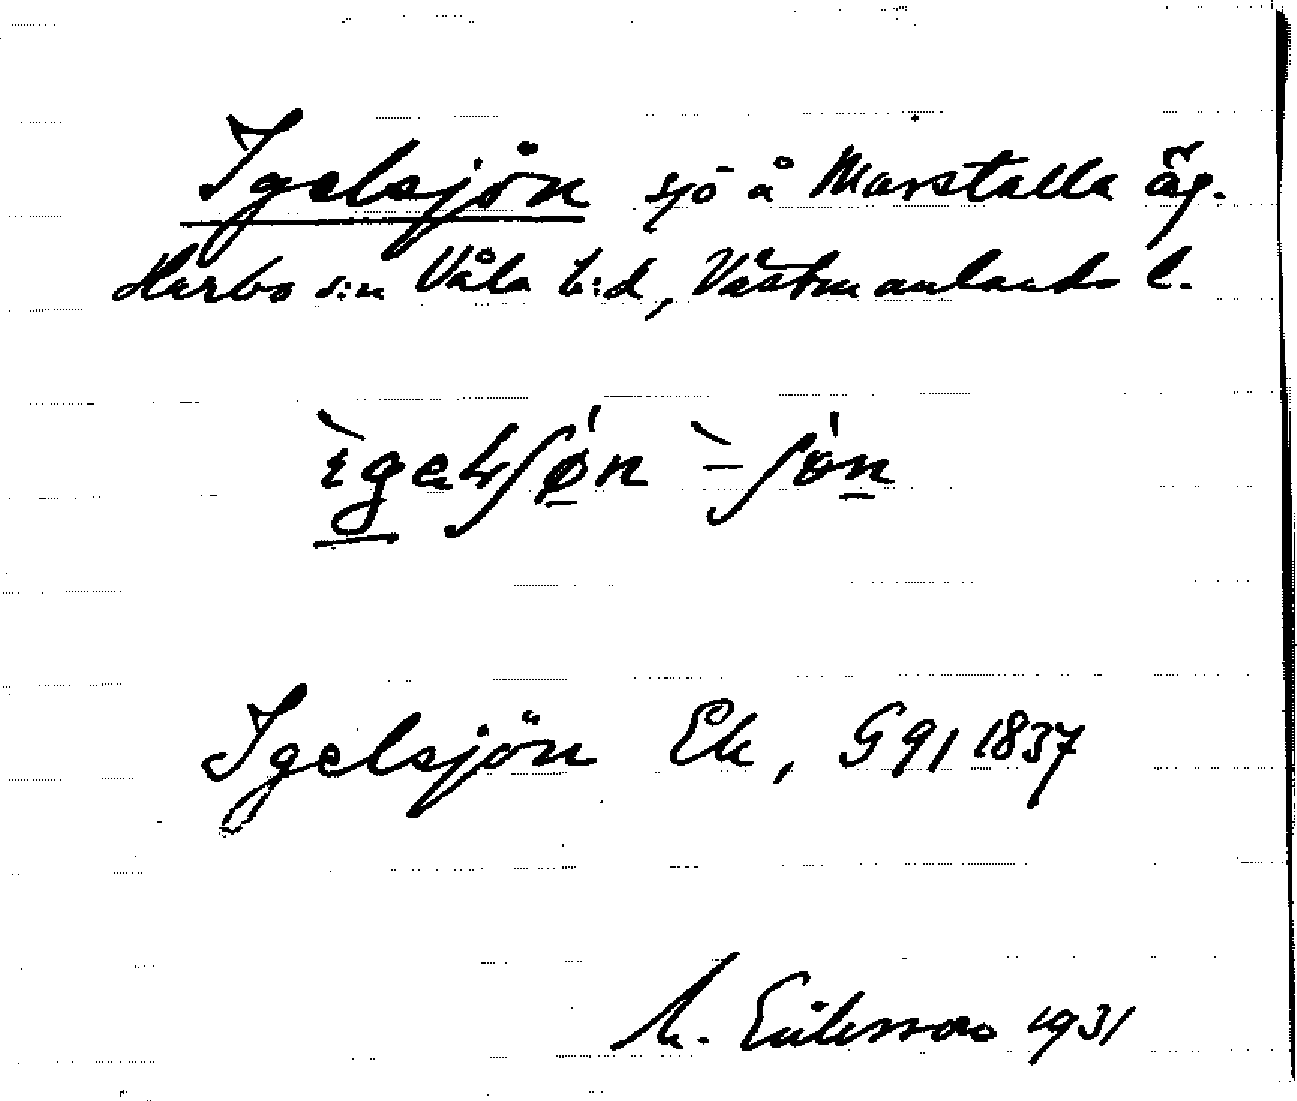 Igelsjön sjö å Marstalla äg.
Harbo s:n Våla h:d, Västmanlands l.
Igelsjön Ek, G91 1837
M. Eriksson 1931